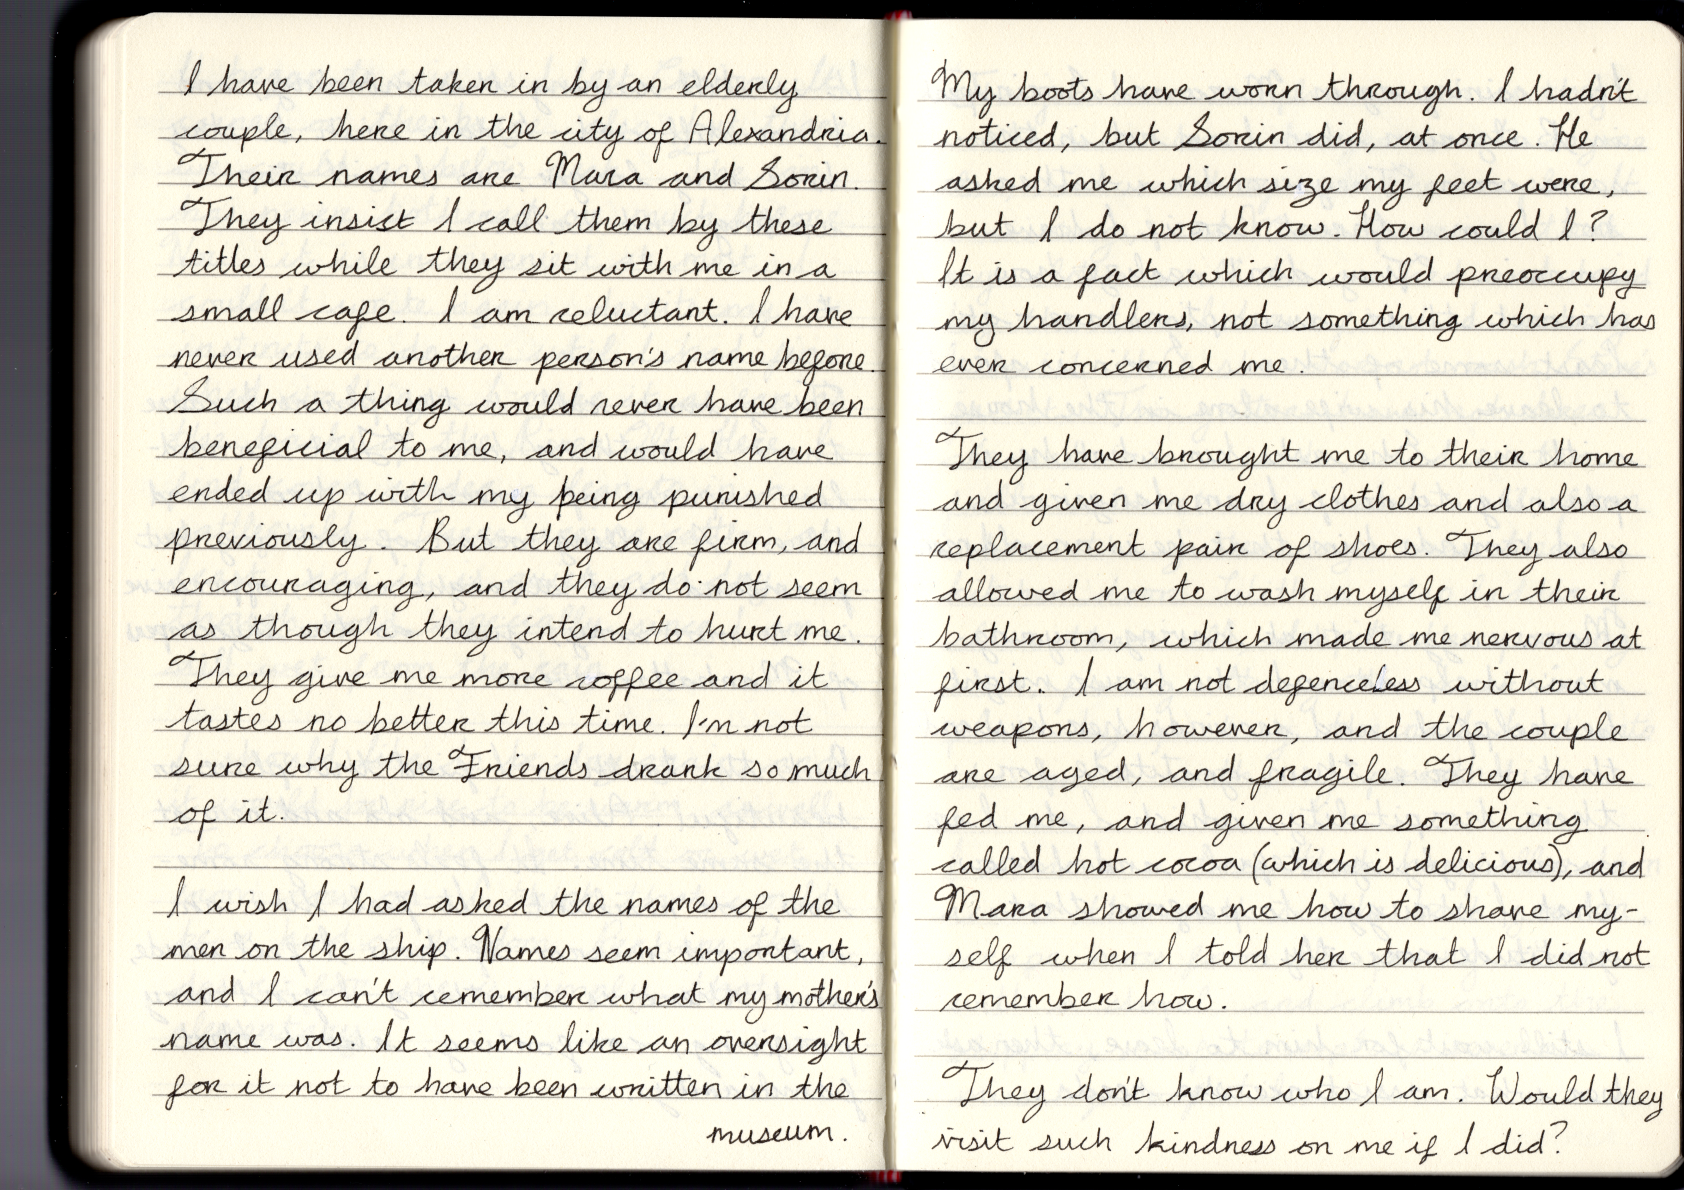 I have been taken in by an elderly
couple, here in the city of Alexandria.
Their names are Mara and Sorin.
They insist I call them by these
titles while they sit with me in a
small cafe. I am reluctant. I have
never used another person's name before.
Such a thing would never have been
beneficial to me, and would have
ended up with my being punished
previously. But they are firm, and
encouraging, and they do not seem
as though they intend to hurt me.
They give me more coffee and it
tastes no better this time. I'm not
sure why the Friends drank so much
of it.
I wish I had asked the names of the
men on the ship. Names seem important,
and I can't remember what my mother's
name was. It seems like an oversight
for it not to have been written in the
museum.
My boots have worn through. I hadn't
noticed, but Sorin did, at once. He
asked me which size my feet were,
but I do not know. How could I?
It is a fact which would preoccupy
my handlers, not something which has
ever concerned me.
They have brought me to their home
and given me dry clothes and also a
replacement pair of shoes. They also
allowed me to wash myself in their
bathroom, which made me nervous at
first. I am not defenceless without
weapons, however, and the couple
are aged, and fragile. They have
fed me, and given me something
called hot cocoa (which is delicious), and
Mara showed me how to shave my-
self when I told her that I did not
remember how.
They don't know who I am. Would they
visit such kindness on me if I did?